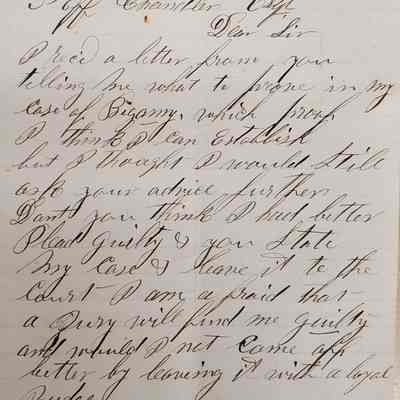 Jeff Chandler Esqr
Dear Sir
I rec'd a letter from you
telling me what to prove in my
case of Bigamy, which proof
I think I can Establish
but I thought I would Still
ask your advice further
Dant you think I had better
Plead guilty & you State
my Case & leave it to the
Court I am afraid that
a Jury will find me guilty
and would I not Come off
better by leaving it with a loyal
Judge